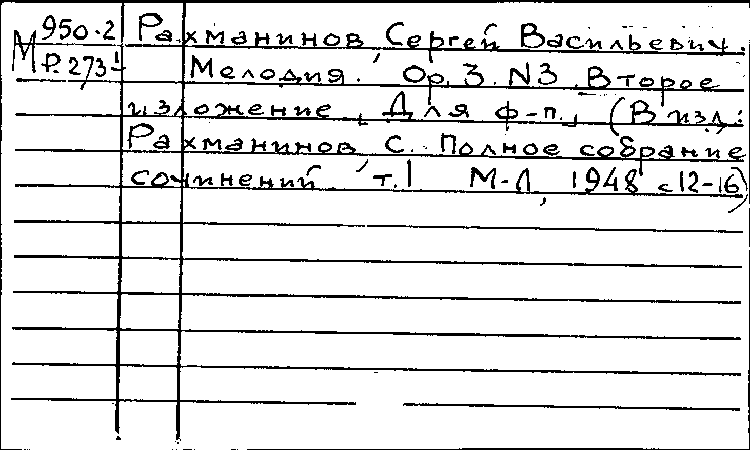 М 950-2 Рахманинов, Сергей Васильевич.
Р.273-1 Мелодия. Ор. 3. N3. Второе
изложение [Для ф-п.] (В изд.:
Рахманинов, С. Полное собрание
сочинений, т.1 М-Л, 1948 с 12-16)